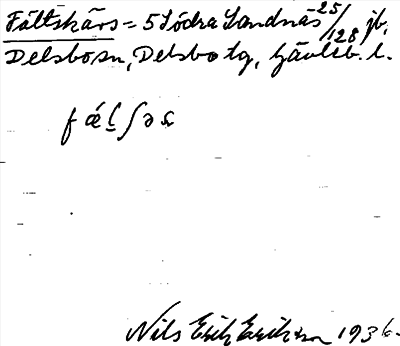 Fältskärs = 5 Södra Sandnäs 25/128 jb.
Delsbo sn, Delsbo tg, Gävleb. l.
fǽʃəs
Nils Erik Erikson 1936.